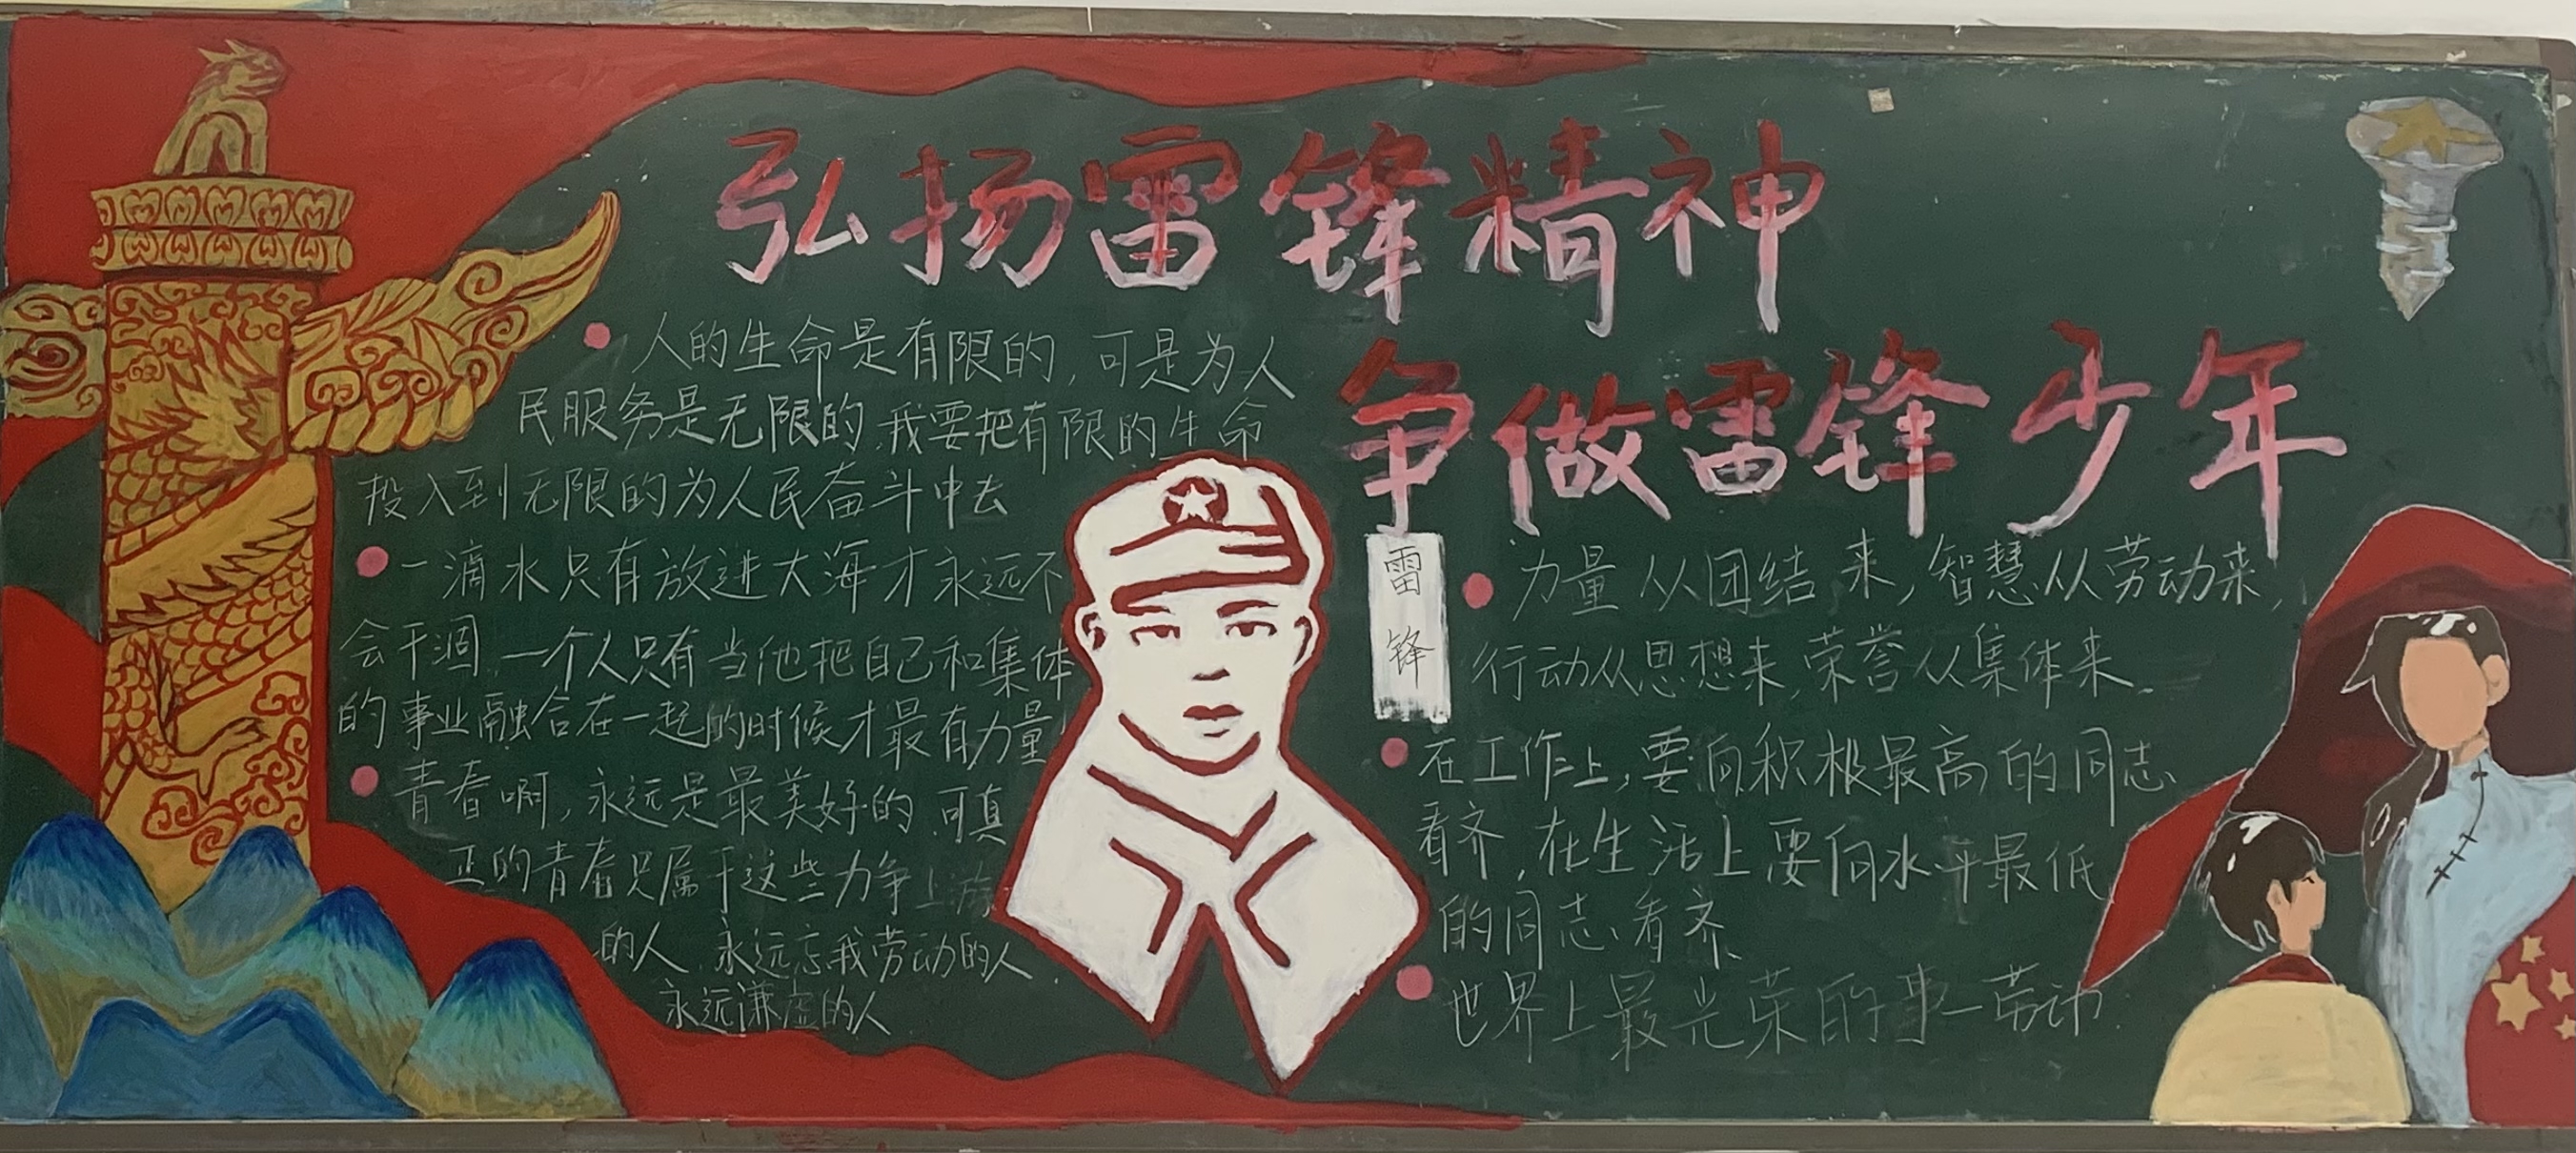 弘扬雷锋精神
争做雷锋少年
人的生命是有限的，可是为人
民服务是无限的，我要把有限的生命
投入到无限的为人民奋斗中去
一滴水只有放进大海才永远不
会干涸，一个人只有当他把自己和集体
的事业融合在一起的时候才最有力量
青春啊，永远是最美好的，可真
正的青春只属于这些力争上游
的人，永远忘我劳动的人，
永远谦虚的人
雷锋
力量从团结来，智慧从劳动来，
行动从思想来，荣誉从集体来。
在工作上，要向积极最高的同志
看齐，在生活上要向水平最低
的同志看齐
世界上最光荣的事—劳动